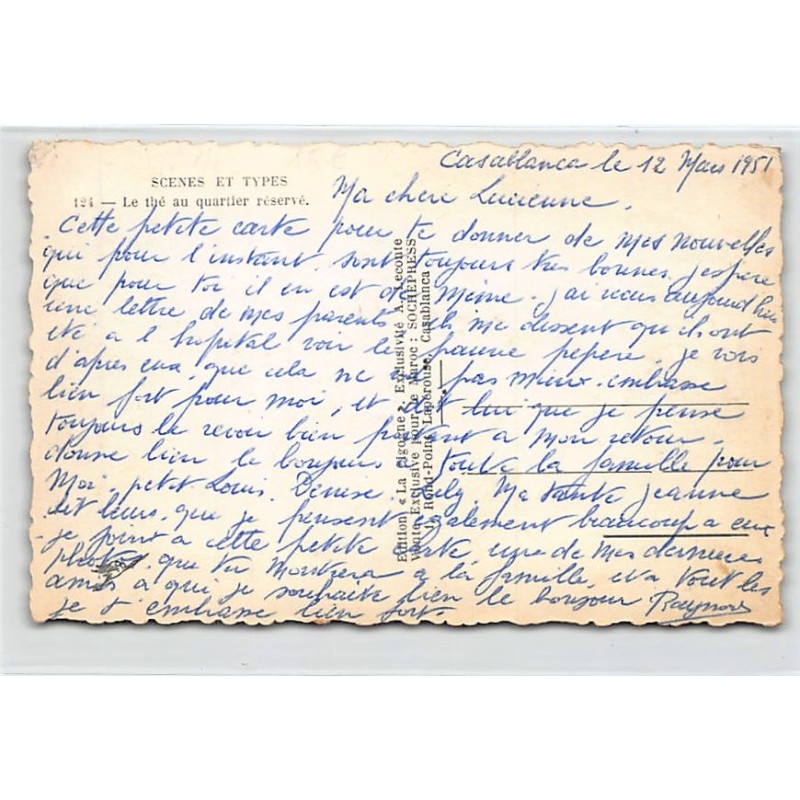 Casablanca le 12 Mars 1951
SCENES ET TYPES
124 — Le thé au quartier réservé.
Ma chere Lucienne.
Cette petite carte pour te donner de mes nouvelles
qui pour l'instant sont toujours tres bonnes. j'espere
que pour toi il en est de Même. j'ai recus aujourd'hui
une lettre de mes parents ils me dissent qu'ils ont
eté a l'hopital voir le pauvre pepere. je vois
d'apres eux que cela ne va pas mieux. embrasse
bien fort pour moi, et dit lui que je pense
toujours le revoir bien portant a mon retour.
donne bien le bonjours a toute la famille pour
Moi. petit Louis. Denise. Ma tante Jeanne
dit leurs que je pensent egalement beaucoup a eux
je joint a cette petite carte une de mes dernieres
photos que tu montrera a la famille et a tout les
amis a qui je souhaite bien le bonjour
je t'embrasse bien fort.
Edition « La Cigogne ». Exclusivité A. Lecoute
Vente Exclusive pour le Maroc : SOCHEPRESS
Rond-Point Lapérouse, Casablanca